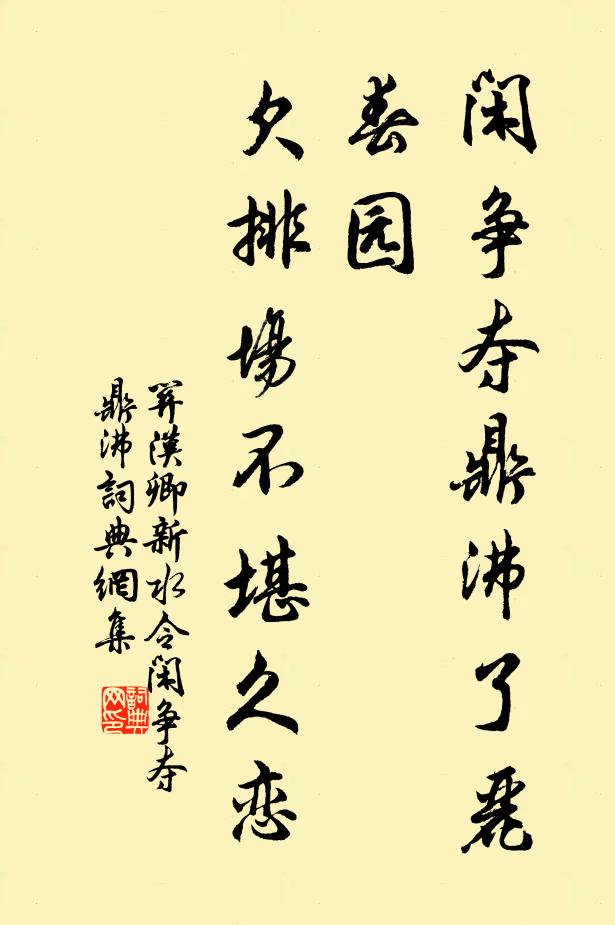 闲争夺鼎沸了丽
春园
欠排場不堪久恋
関漢卿新水令闲争夺
鼎沸詞典網集
詞典
网印